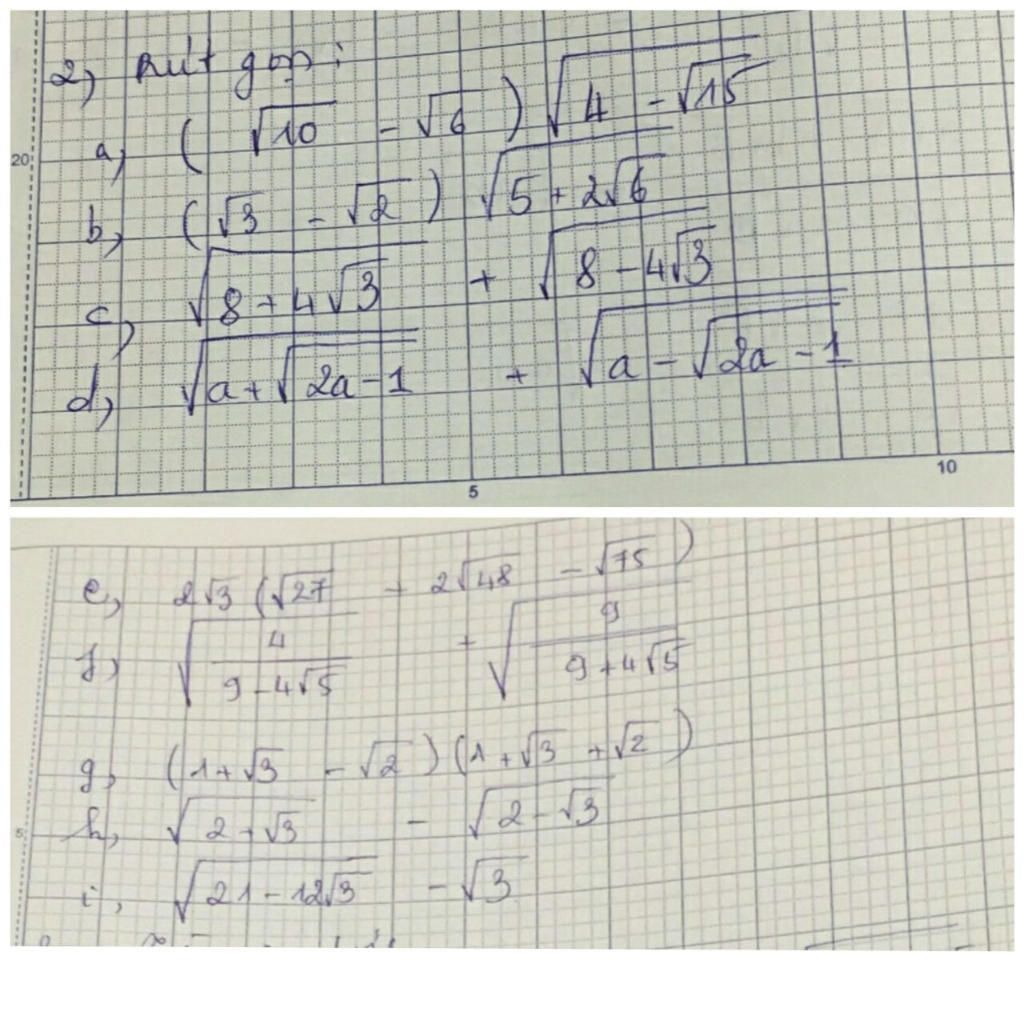 2) Rút gọn :
20
a, ( √10 - √6 ) √(4 - √15)
b, ( √3 - √2 ) √(5 + 2√6)
c, √(8 + 4√3) + √(8 - 4√3)
d, √(a + √(2a - 1)) + √(a - √(2a - 1))
5 10
e, 2√3 ( √27 + 2√48 - √75 )
f, √(4/(9 - 4√5)) + √(9/(9 + 4√5))
g, ( 1 + √3 - √2 ) ( 1 + √3 + √2 )
h, √(2 + √3) - √(2 - √3)
5
i, √(21 - 12√3) - √3